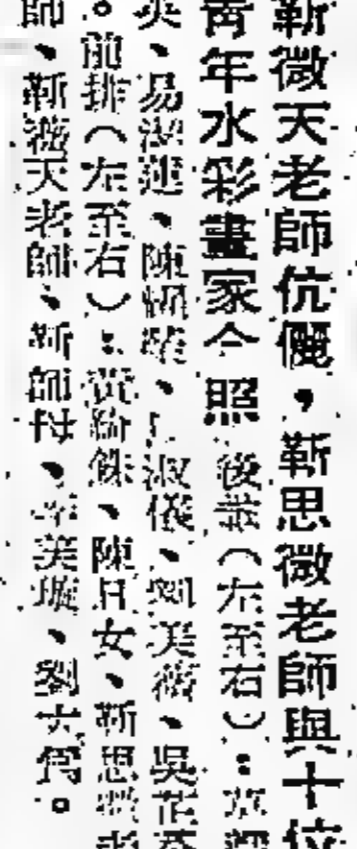 靳微天老師伉儷，靳思微老師與十位
青年水彩畫家合照 後排（左至右）：
、易潔蓮、陳、淑儀、劉美薇、吳芷
。前排（左至右）：黃綺銖、陳日女、靳思微老
師、靳微天老師、靳師母、美璇、劉大筠。